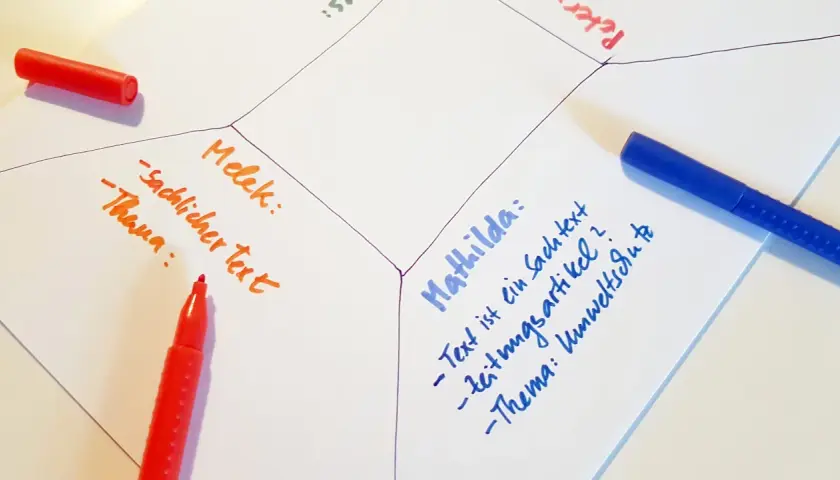 s:
Peter
Melek:
- sachlicher Text
- Thema:
Mathilda:
- Text ist ein Sachtext
- Zeitungsartikel?
- Thema: Umweltschutz